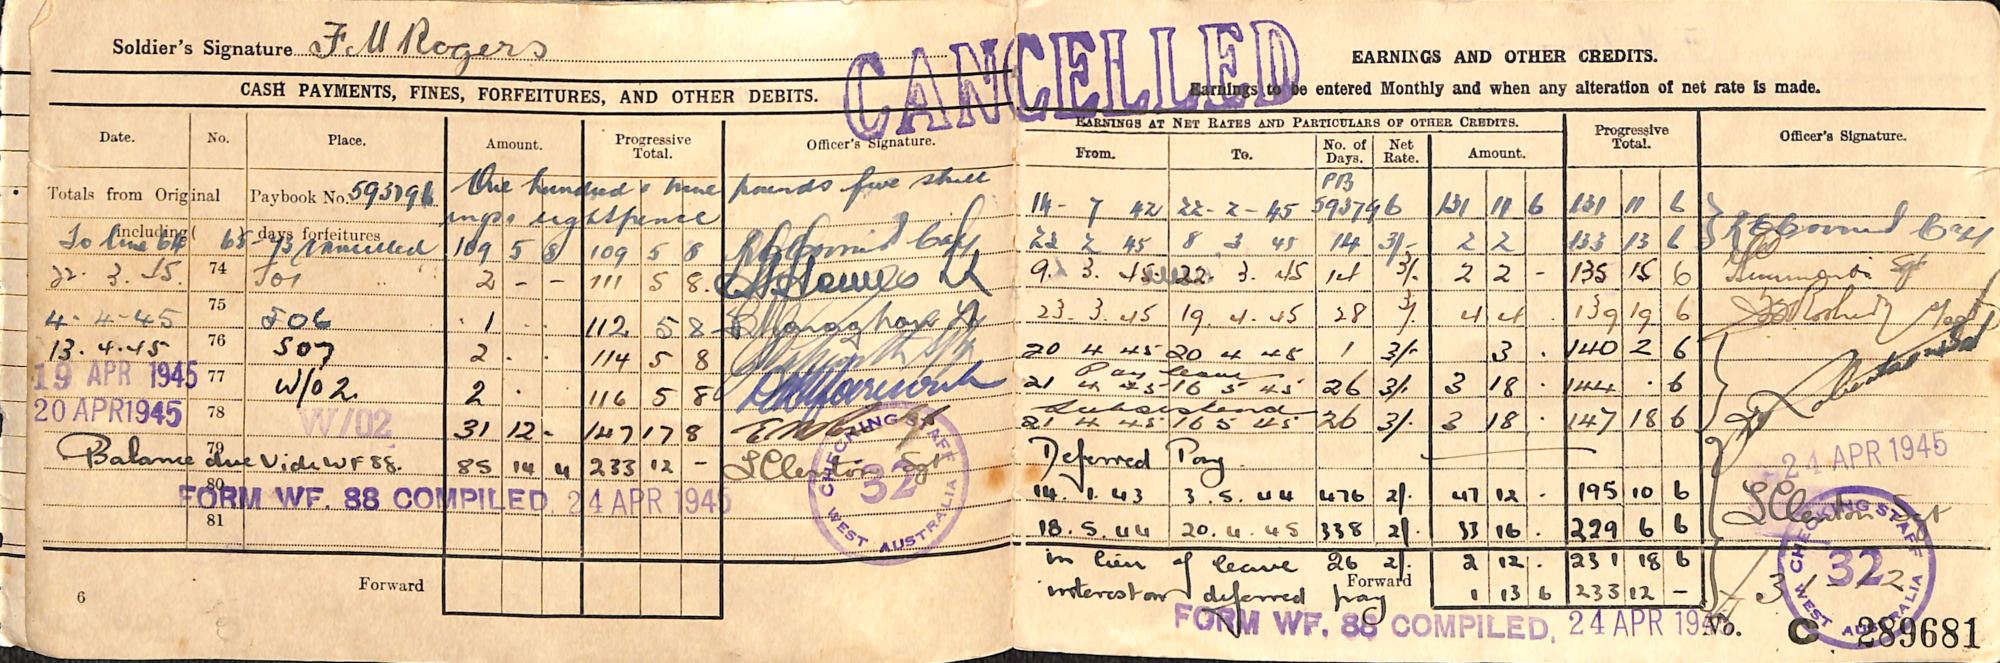 Soldier's Signature F. M Rogers
CANCELLED
CASH PAYMENTS, FINES, FORFEITURES, AND OTHER DEBITS.
Date. No. Place. Amount. Progressive Total. Officer's Signature.
Totals from Original Paybook No. 593796 One hundred & nine pounds five shill
ings eightpence
including ( days forfeitures
To line 64 65-73 cancelled 109 5 8 109 5 8
22. 3. 45. 74 501 2 - - 111 5 8.
4-4-45 75 506 1 . . 112 5 8
13.4.45 76 507 2 . . 114 5 8
19 APR 1945 77 W/02. 2 . . 116 5 8
20 APR 1945 78 W/02 31 12 - 147 17 8
79 Balance due Vide WF 88. 85 14 4 233 12 - S Clenton Sgt
80
FORM WF. 88 COMPILED. 24 APR 1945
81
CHECKING STAFF 32 WEST AUSTRALIA
Forward
6
EARNINGS AND OTHER CREDITS.
Earnings to be entered Monthly and when any alteration of net rate is made.
EARNINGS AT NET RATES AND PARTICULARS OF OTHER CREDITS. Progressive Total. Officer's Signature.
From. To. No. of Days. Net Rate. Amount.
PB
14- 7 42 22-2-45 593796 131 11 6 131 11 6
23 2 45 8 3 45 14 3/- 2 2 133 13 6
9. 3. 45. 22 3. 45 14 3/. 2 2 - 135 15 6
23. 3. 45 19. 4. 45 28 3/. 4 4 . 139 19 6
20 4 45 20 4 45 1 3/- 3 . 140 2 6
Pay leave
21 4 45 16 5 45 26 3/. 3 18 . 144 . 6
21 4 45 16 5 45 26 3/. 3 18 . 147 18 6
Deferred Pay.
24 APR 1945
14. 1. 43 3. 5. 44 476 2/. 47 12 . 195 10 6
18. 5. 44 20. 4. 45 338 2/. 33 16 . 229 6 6 S Clenton Sgt
in lieu of leave 26 2/. 2 12 . 231 18 6
Forward
interest on deferred pay 1 13 6 233 12 -
CHECKING STAFF 32 WEST AUSTRALIA
FORM WF. 88 COMPILED. 24 APR 1945
No. C 289681